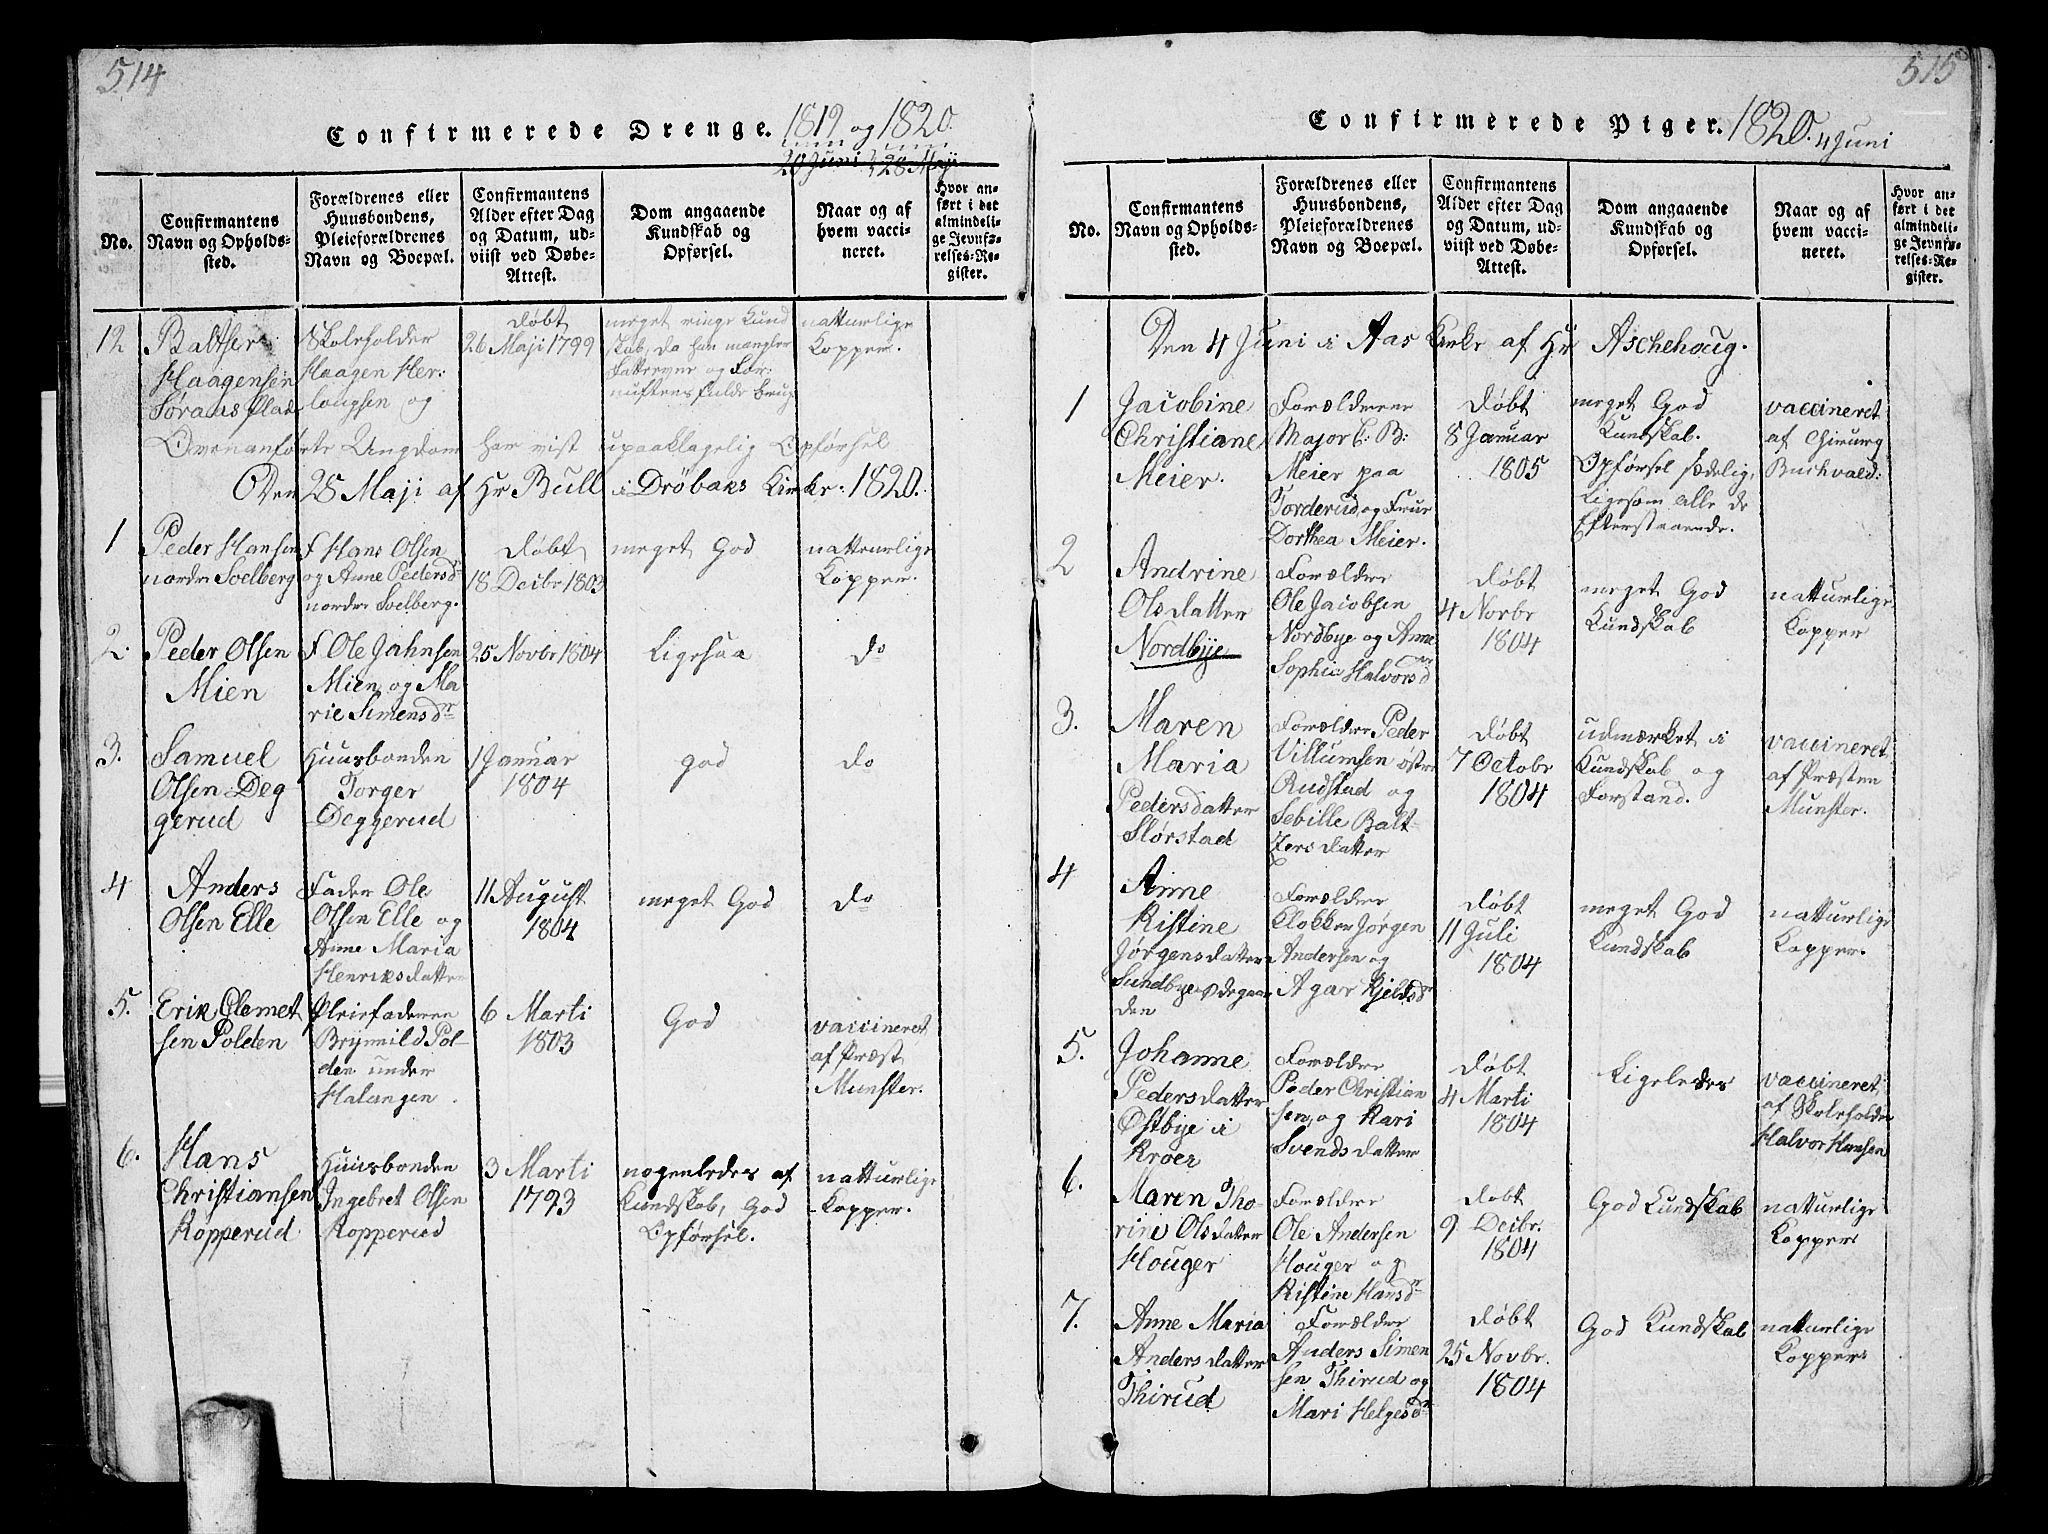 514
Confirmerede Drenge. 1819 og 1820.
20 Juni 28 Maji
No.
Confirmantens
Navn og Opholds-
sted.
Forældrenes eller
Huusbondens,
Pleieforældrenes
Navn og Boepæl.
Confirmantens
Alder efter Dag
og Datum, ud-
viist ved Døbe-
Attest.
Dom angaaende
Kundskab og
Opførsel.
Naar og af
hvem vacci-
neret.
Hvor an-
ført i det
almindeli-
ge Jevnfø-
relses-Re-
gister.
12
Baltser
Haagensen
Søraas plad
Skoleholder
Haagen Her-
lougsen og
døbt
26 Maji 1799
meget ringe Kund
skab, da han mangler
Fatteevne og For-
nuftens fulde brug
natturlige
Kopper.
Ovenanførte Ungdom har vist upaaklagelig Opførsel
Den 28 Maji af Hr Bull i Drøbaks Kirke. 1820.
1
Peder Hansen
nordre Solberg
f Hans Olsen
og Anne Pedersdr
nordre Solberg.
døbt
18 Decbr 1803
meget God
natturlige
Kopper.
2.
Peder Olsen
Mien
f Ole Jahnsen
Mien og Ma
rie Simensdr
25 Novbr 1804
Ligesaa
do
3.
Samuel
Olsen Deg
gerud
Huusbonden
Torger
Deggerud
1 Januar
1804
god
do
4
Anders
Olsen Elle
Fader Ole
Olsen Elle og
Anne Maria
Henriksdatter
11 August
1804
meget God
do
5.
Erik Clemet
sen Polden
Pleiefaderen
Brynnild Pol-
den under
Halangen.
6 Marti
1803
God
vaccineret
af Præst
Munster.
6.
Hans
Christiansen
Kopperud
Huusbonden
Ingebret Olsen
Kopperud
3 Marti
1793
nogenledes af
Kundskab, God
Opførsel.
natturlige
Kopper.
515
Confirmerede Piger. 1820. 4 Juni
No.
Confirmantens
Navn og Opholds-
sted.
Forældrenes eller
Huusbondens,
Pleieforældrenes
Navn og Boepæl.
Confirmantens
Alder efter Dag
og Datum, ud-
viist ved Døbe-
Attest.
Dom angaaende
Kundskab og
Opførsel.
Naar og af
hvem vacci-
neret.
Hvor an-
ført i det
almindeli-
ge Jevnfø-
relses-Re-
gister.
Den 4 Juni i Aas Kirke af Hr Aschehoug.
1
Jacobine
Christiane
Meier.
Forælderne
Major C: B:
Meier paa
Torderud, og Frue
Dorthea Meier.
døbt
8 Januar
1805
meget God
Kundskab.
Opførsel sædelig,
Ligesom alle de
Efterstaaende.
vaccineret
af Chirurg
Buchvald:
2
Andrine
Olsdatter
Nordbye
Forældre
Ole Jacobsen
Nordbye og Anne
Sophie Halvorsd
døbt
4 Novbr
1804
meget God
Kundskab
natturlige
Kopper
3.
Maren
Maria
Pedersdatter
Slørstad
Forældre Peder
Villumsen østre
Rudstad og
Sebille Balt-
zersdatter
døbt
7 Octobr
1804
udmærket i
Kundskab og
Forstand.
vaccineret
af Præsten
Munster.
4
Anne
Kistine
Jørgensdatter
Sundbye ødegaar
den
Forældre
Klokker Jørgen
Andersen og
Agar Kjeldsdr
døbt
11 Juli
1804
meget God
Kundskab
natturlige
Kopper.
5.
Johanne
Pedersdatter
Østbye i
Kroer
Forældre
Peder Christian
sen, og Kari
Svendsdatter
døbt
4 Marti
1804
Ligeledes
vaccineret
af Skoleholder
Halvor Hansen
6.
Maren Tho-
rine Olsdatter
Houger
Forældre
Ole Andersen
Houger og
Kistine Hansdr
døbt
9 Decbr.
1804
God Kundskab
natturlige
Kopper
7.
Anne Maria
Andersdatter
Thirud
Forældre
Anders Simen
sen Thirud og
Mari Helgesdr
døbt
25 Novbr.
1804
God Kundskab
natturlige
Kopper